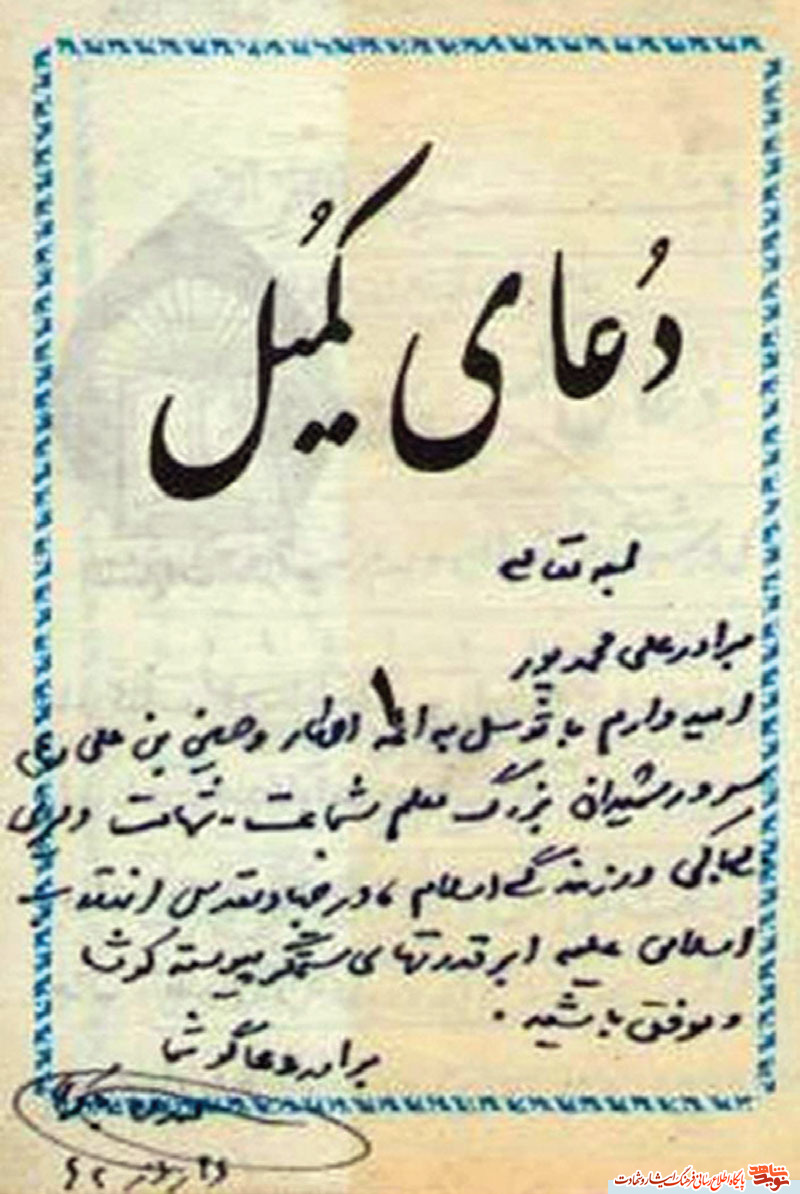 دُعای کُمیل
بسمه تعالی
برادر علی محمد پور
امیدوارم با توسل به ائمه اطهار و حسین بن علی (ع)
سرور شهیدان بزرگ معلم شجاعت - شهامت و
بیباکی و رزمندگی اسلام، در جهاد مقدس انقلاب
اسلامی علیه ابر قدرتهای ستمگر پیوسته کوشا
و موفق باشید.
برادر دعاگو شما
نوید شاهد پایگاه اطلاع رسانی فرهنگ ایثار و شهادت